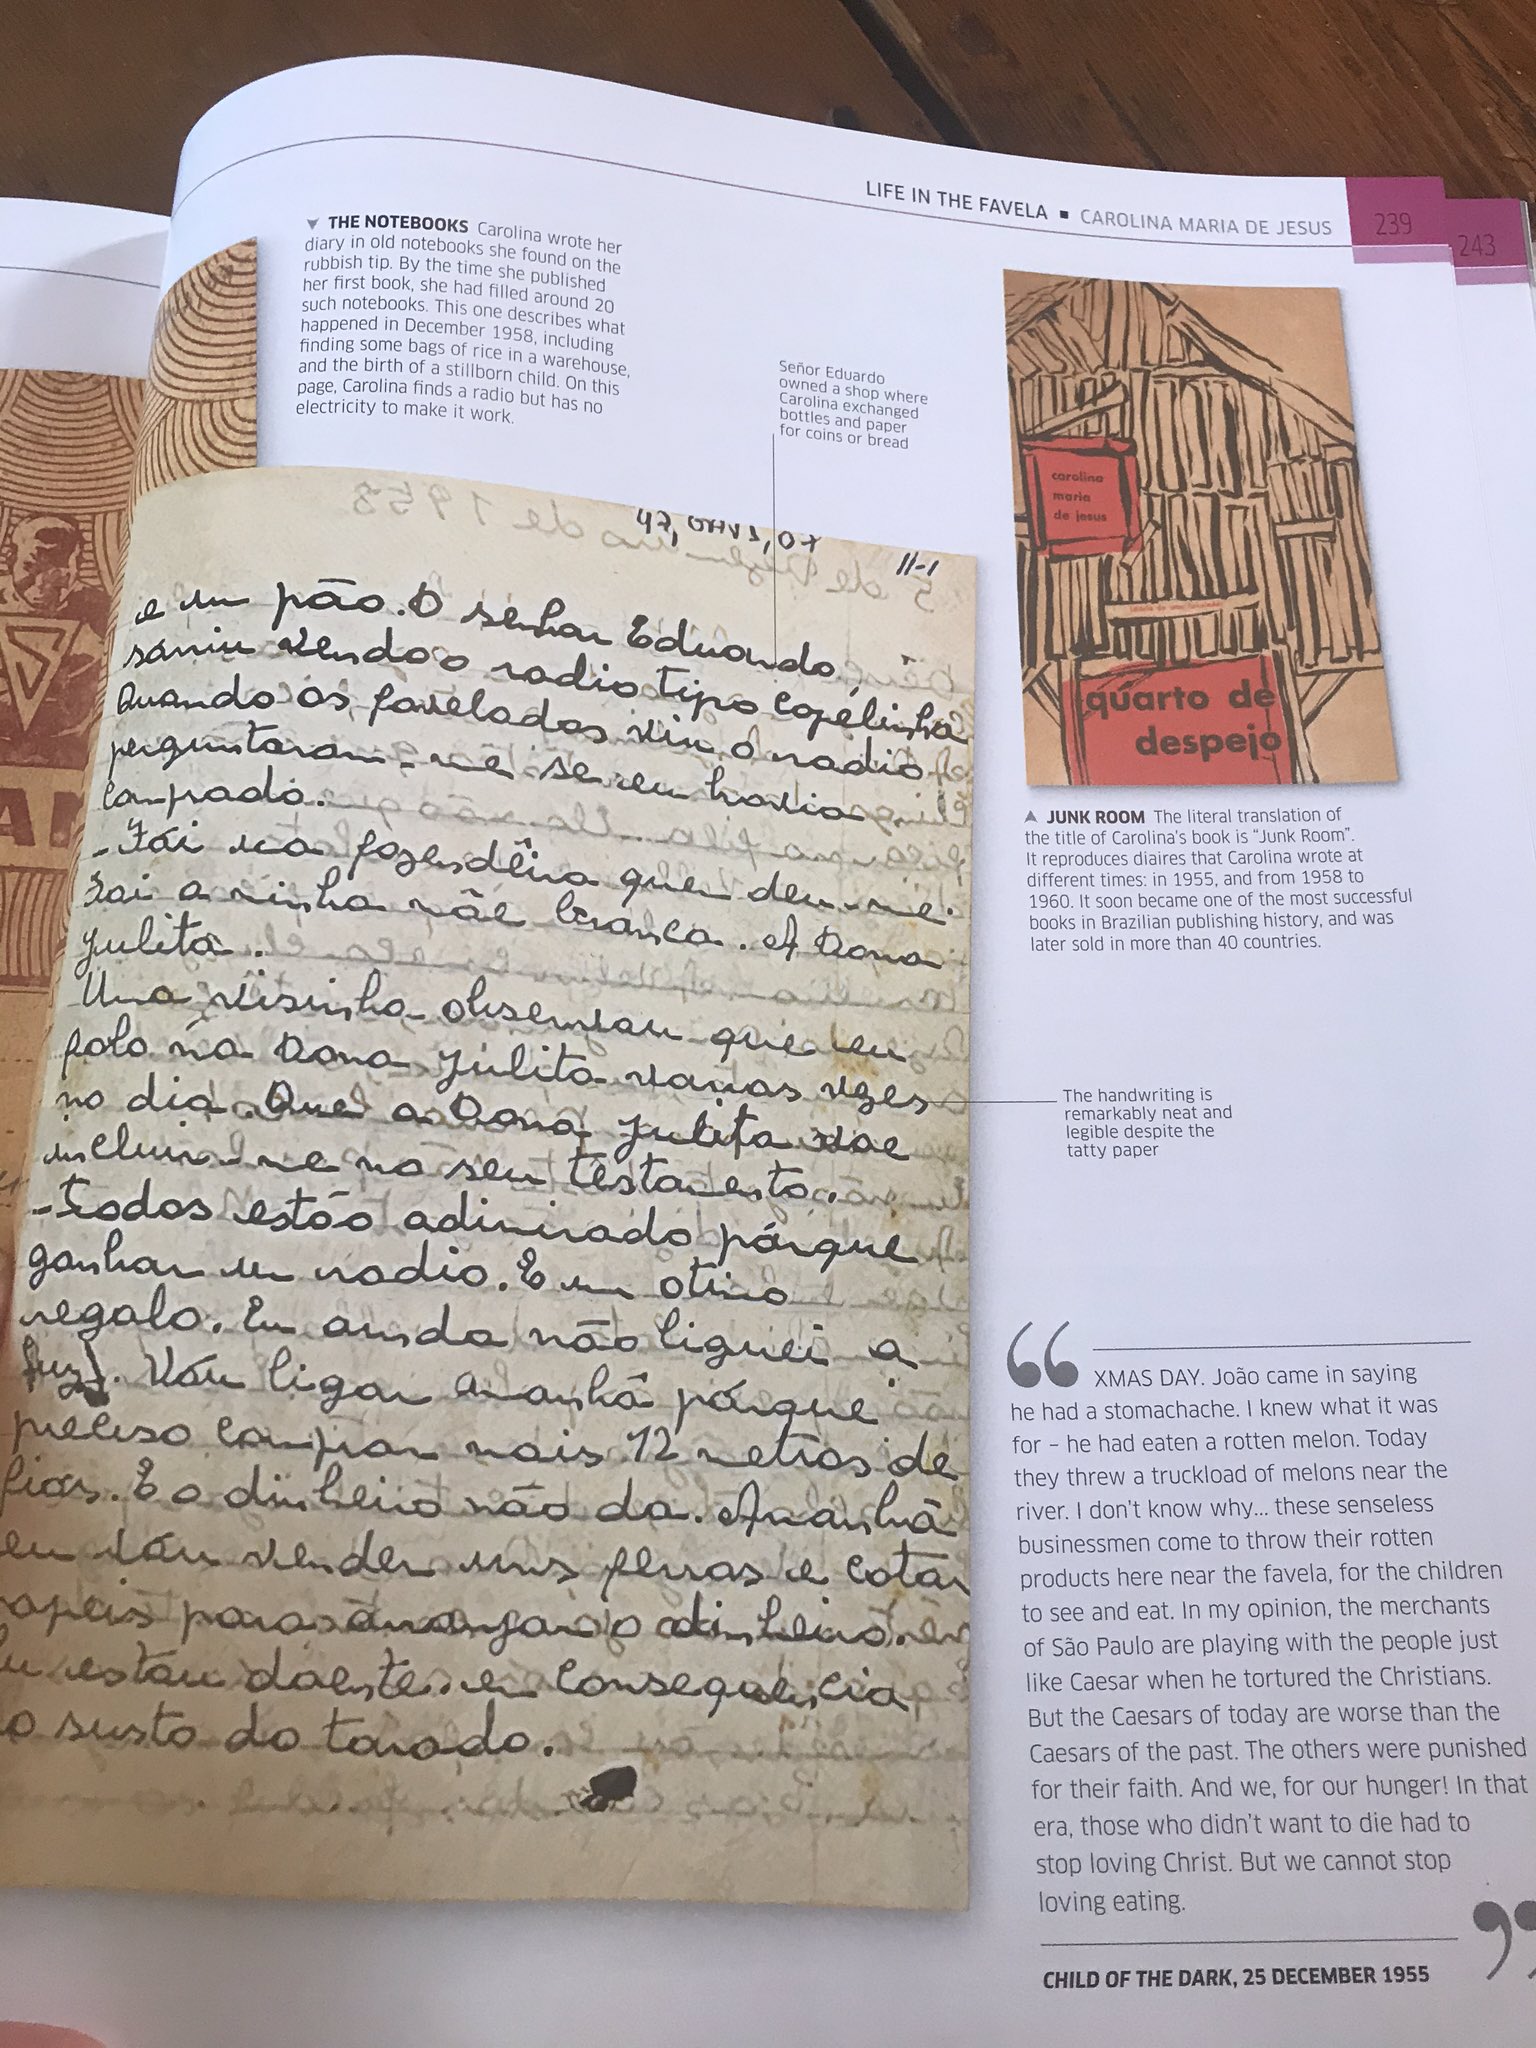 LIFE IN THE FAVELA ■ CAROLINA MARIA DE JESUS 239
243
▼ THE NOTEBOOKS Carolina wrote her
diary in old notebooks she found on the
rubbish tip. By the time she published
her first book, she had filled around 20
such notebooks. This one describes what
happened in December 1958, including
finding some bags of rice in a warehouse,
and the birth of a stillborn child. On this
page, Carolina finds a radio but has no
electricity to make it work.
Señor Eduardo
owned a shop where
Carolina exchanged
bottles and paper
for coins or bread
carolina
maria
de jesus
quarto de
despejo
▲ JUNK ROOM The literal translation of
the title of Carolina's book is “Junk Room”.
It reproduces diaires that Carolina wrote at
different times: in 1955, and from 1958 to
1960. It soon became one of the most successful
books in Brazilian publishing history, and was
later sold in more than 40 countries.
11-1
e um pão. O senhor Eduardo
vendo o radio tipo
Quando os favelados viu o radio
perguntaram-me se eu havia
comprado.
- Foi na que deu-me.
Foi a minha mãe branca. A Dona
Julita.
Uma visinha observou que eu
falo na Dona Julita varias vezes
no dia. Que a Dona Julita vae
incluir-me no seu testamento.
- Todos estão admirado pórque
ganhar um radio. E um otimo
regalo. Eu ainda não liguei a
luz. Vóu ligar amanhã pórque
preciso comprar mais 12 metros de
fios. E o dinheiro não da. Amanhã
eu vóu vender uns ferros e catar
papeis para arranjar o dinheiro.
estou doente. em consequencia
o susto do tarado.
The handwriting is
remarkably neat and
legible despite the
tatty paper
“ XMAS DAY. João came in saying
he had a stomachache. I knew what it was
for – he had eaten a rotten melon. Today
they threw a truckload of melons near the
river. I don't know why... these senseless
businessmen come to throw their rotten
products here near the favela, for the children
to see and eat. In my opinion, the merchants
of São Paulo are playing with the people just
like Caesar when he tortured the Christians.
But the Caesars of today are worse than the
Caesars of the past. The others were punished
for their faith. And we, for our hunger! In that
era, those who didn't want to die had to
stop loving Christ. But we cannot stop
loving eating. ”
CHILD OF THE DARK, 25 DECEMBER 1955